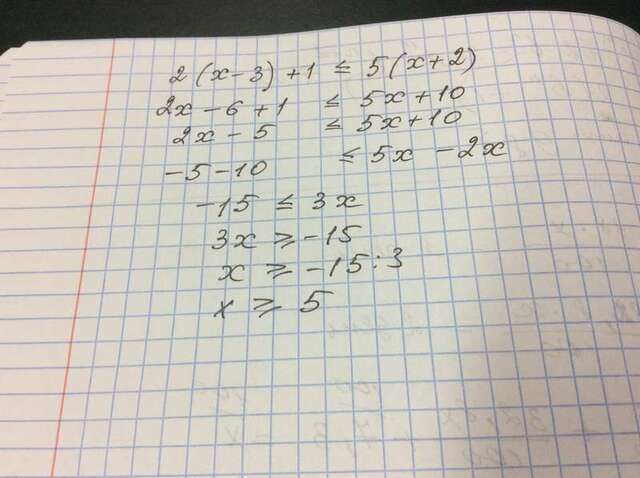 2(x-3)+1 ≤ 5(x+2)
2x-6+1 ≤ 5x+10
2x-5 ≤ 5x+10
-5-10 ≤ 5x-2x
-15 ≤ 3x
3x ≥ -15
x ≥ -15:3
x ≥ 5